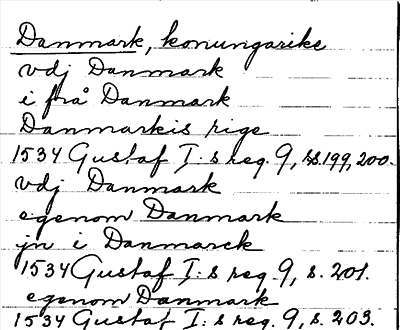 Danmark, konungarike
vdj Danmark
i från Danmark
Danmarkis rige
1534 Gustaf I:s reg. 9, s. 199, 200.
vdj Danmark
egenom Danmark
jn i Danmarck
1534 Gustaf I:s reg. 9, s. 201.
egenom Danmark
1534 Gustaf I:s reg. 9, s. 203.